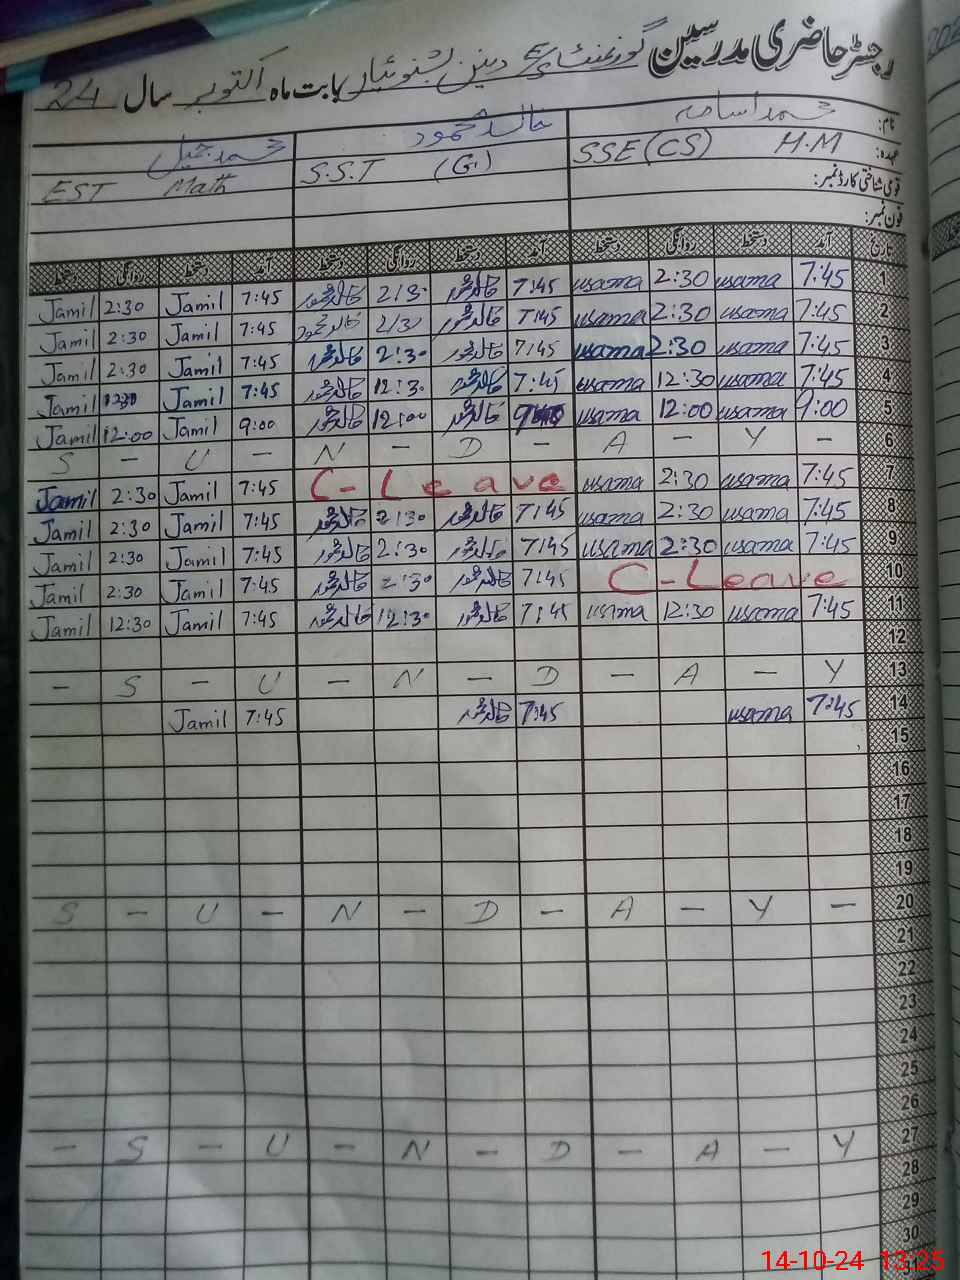 رجسٹر حاضری مدرسین گورنمنٹ بابت ماہ اکتوبر سال 24
نام: محمد اسامہ خالد محمود محمد جمیل
عہدہ: H.M SSE (CS) S.S.T (G.) EST Math
قومی شناختی کارڈ نمبر:
فون نمبر:
تاریخ آمد دستخط روانگی دستخط آمد دستخط روانگی دستخط آمد دستخط روانگی دستخط
1 7:45 usama 2:30 usama 7:45 خالد محمود 2:30 خالد محمود 7:45 Jamil 2:30 Jamil
2 7:45 usama 2:30 usama 7:45 خالد محمود 2:30 خالد محمود 7:45 Jamil 2:30 Jamil
3 7:45 usama 2:30 usama 7:45 خالد محمود 2:30 خالد محمود 7:45 Jamil 2:30 Jamil
4 7:45 usama 12:30 usama 7:45 خالد محمود 12:30 خالد محمود 7:45 Jamil 12:30 Jamil
5 9:00 usama 12:00 usama خالد محمود 12:00 خالد محمود 9:00 Jamil 12:00 Jamil
6 S - U - N - D - A - Y -
7 7:45 usama 2:30 usama C-Leave 7:45 Jamil 2:30 Jamil
8 7:45 usama 2:30 usama 7:45 خالد محمود 2:30 خالد محمود 7:45 Jamil 2:30 Jamil
9 7:45 usama 2:30 usama 7:45 خالد محمود 2:30 خالد محمود 7:45 Jamil 2:30 Jamil
10 C-Leave 7:45 خالد محمود 2:30 خالد محمود 7:45 Jamil 2:30 Jamil
11 7:45 usama 12:30 usama 7:45 خالد محمود 12:30 خالد محمود 7:45 Jamil 12:30 Jamil
12
13 - S - U - N - D - A - Y
14 7:45 usama 7:45 خالد محمود 7:45 Jamil
15
16
17
18
19
20 S - U - N - D - A - Y -
21
22
23
24
25
26
27 - S - U - N - D - A - Y
28
29
30
31
14-10-24 13:25